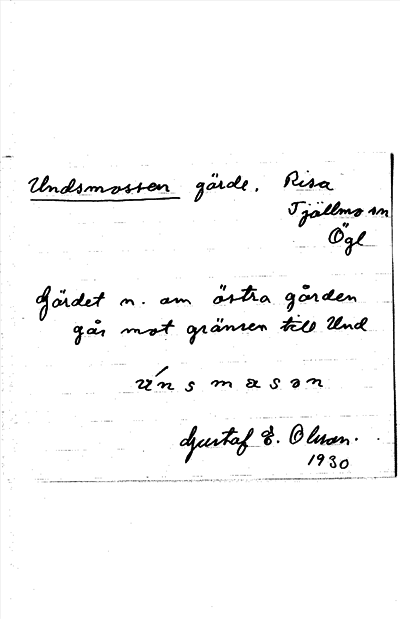 Undsmossen gärde. Risa
Tjällmo sn
Ögl
Gärdet n. om östra gården
går mot gränsen till Und
ú n s m a s ə n
Gustaf E. Olsson.
1930